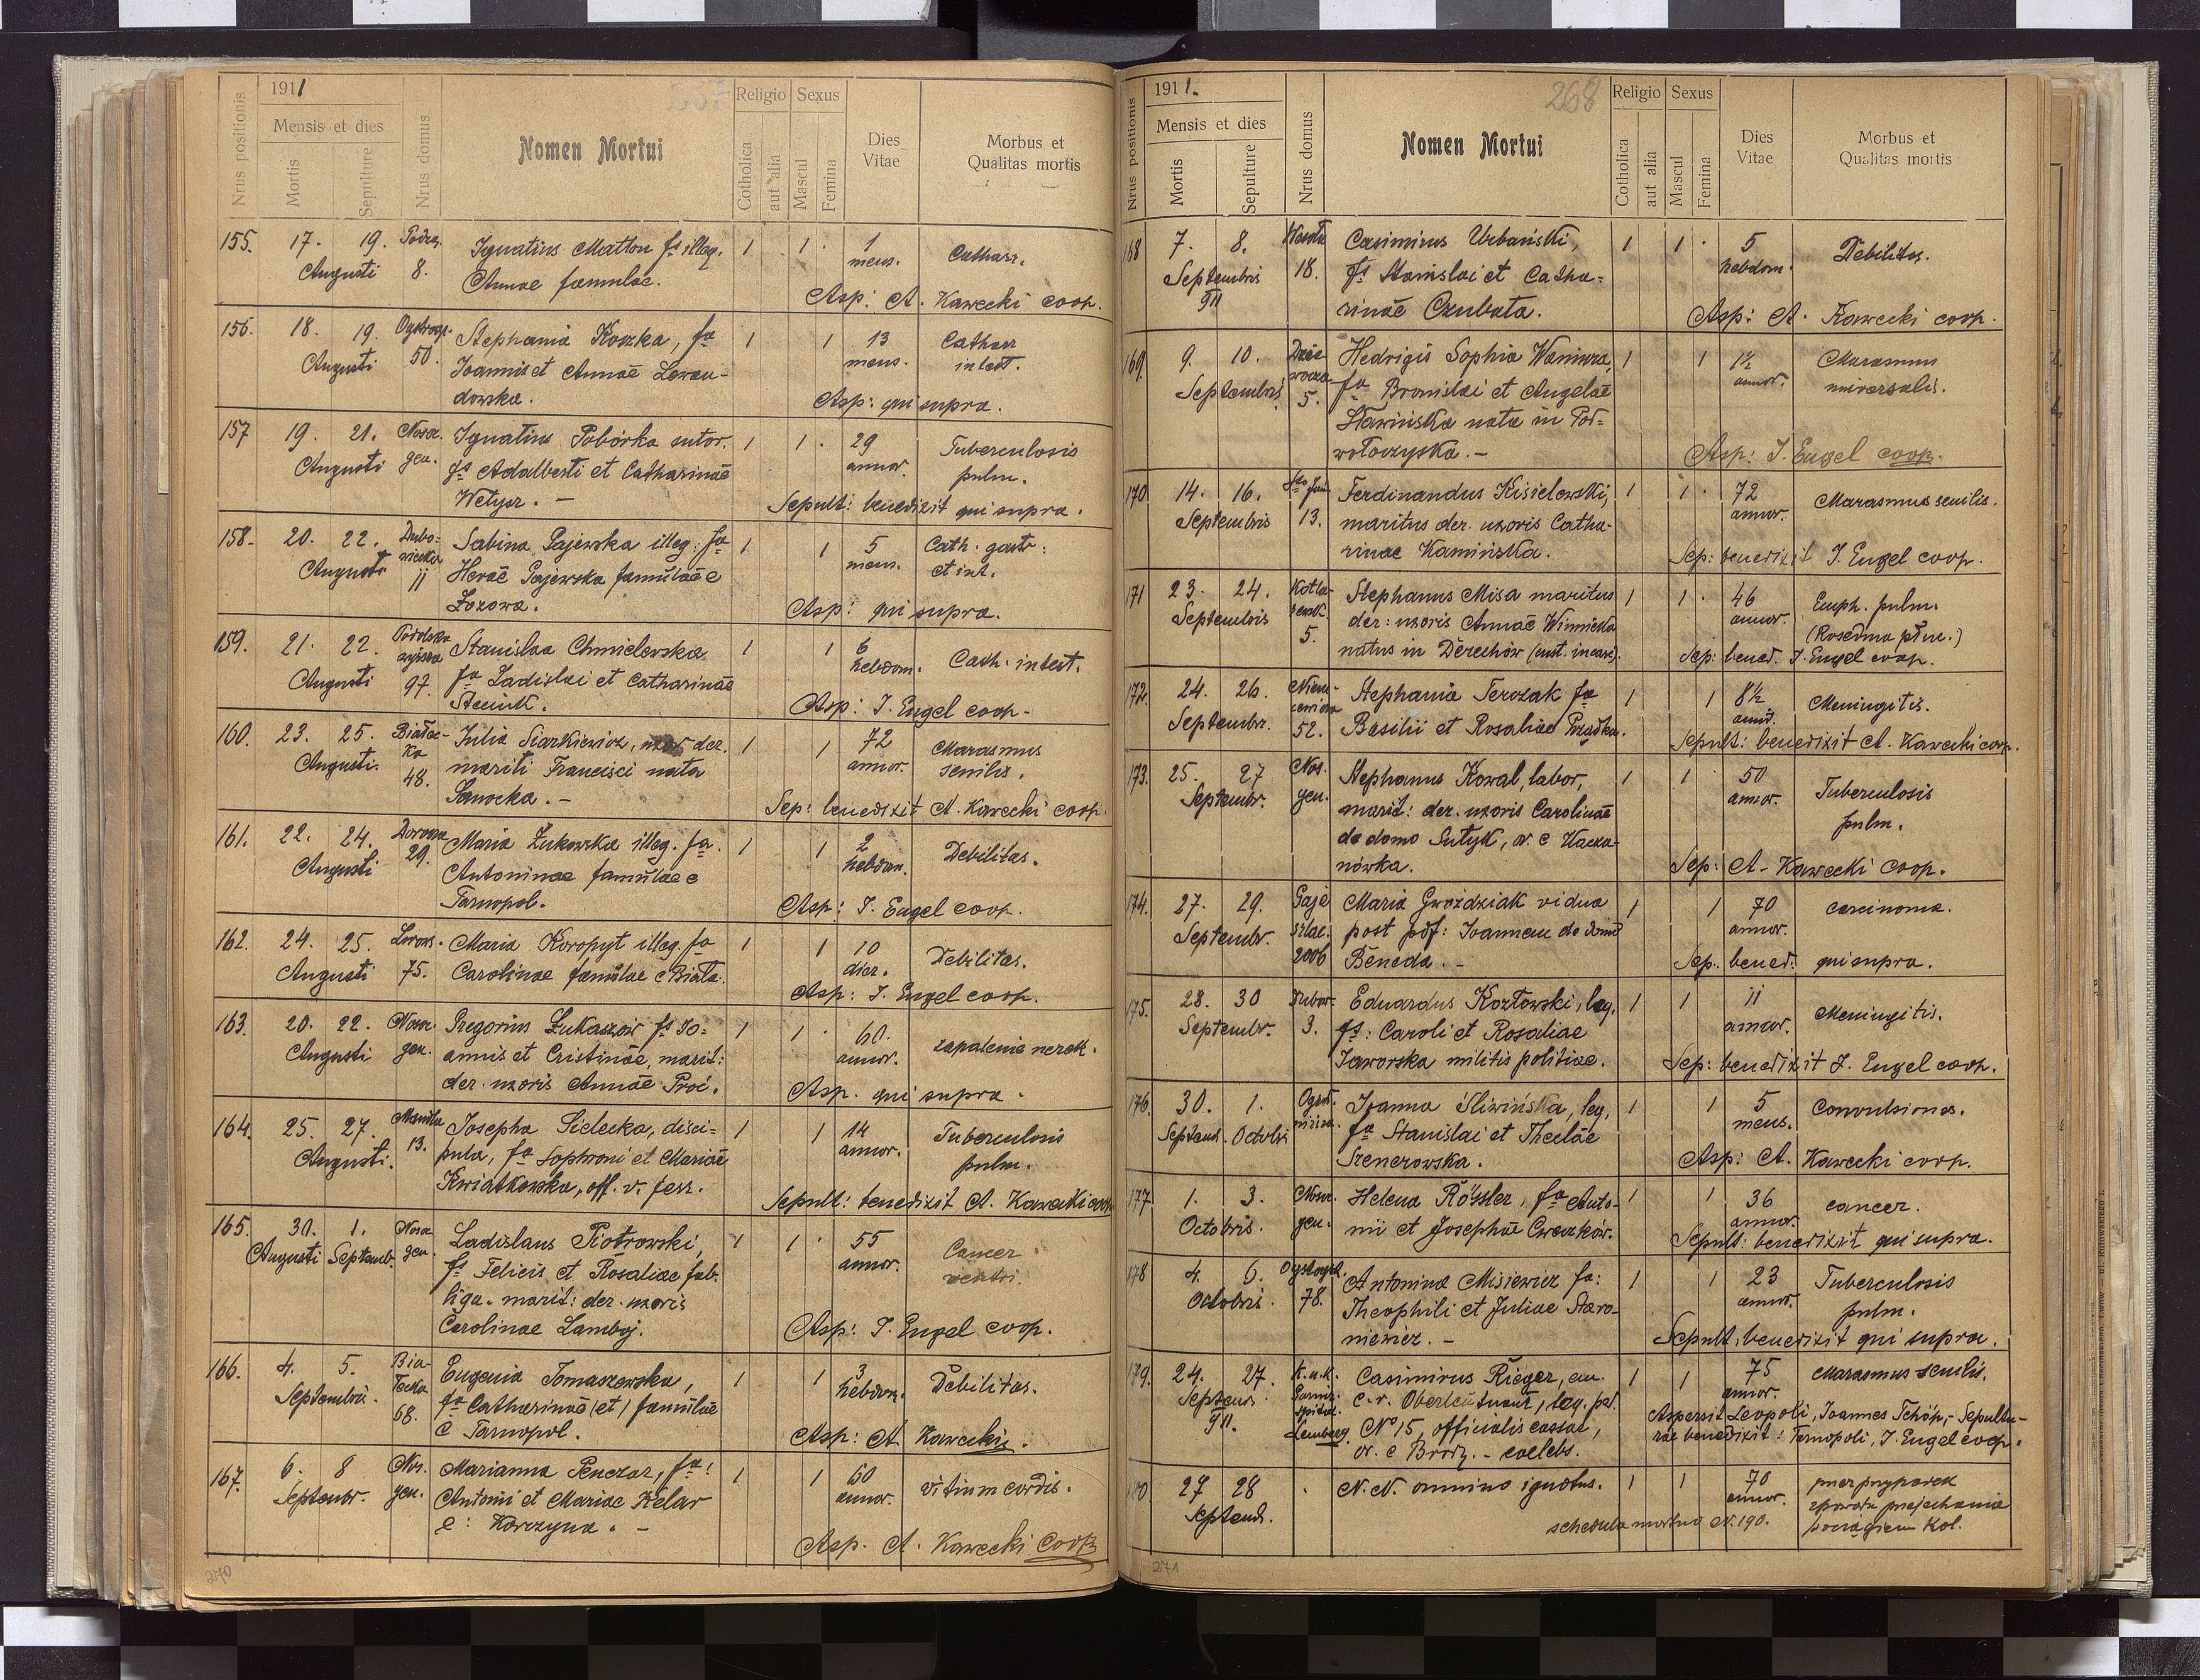 1911
Nrus positionis
Mensis et dies
Mortis
Sepulture
Nrus domus
Nomen Mortui
Religio
Cotholica
aut alia
Sexus
Mascul
Femina
Dies Vitae
Morbus et
Qualitas mortis
155. 17. 19. Augusti 8.
Ignatius Matton fs illeg.
Annae famulae.
1 1 1 mens. Catharr.
Asp: A. Kawecki coop.
156. 18. 19. Augusti 50.
Stephania Koszka, fa
Joannis et Annae Lewan-
dowska.
1 1 13 mens. Catharr intest.
Asp: qui supra.
157 19. 21. Augusti Nosoc. gen.
Ignatius Poborka sutor.
fs Adalberti et Catharinae
1 1 29 annor. Tuberculosis pulm.
Sepult: benedixit qui supra.
158. 20. 22. Augusti 11
Sabina Gajewska illeg: fa
Gajewska famulae e
Łozowa.
1 1 5 mens. Cath. gastr: et int.
Asp: qui supra.
159. 21. 22. Augusti Podolska 97.
Stanislaa Chmielewska
fa Ladislai et Catharinae
1 1 6 hebdom. Cath. intest.
Asp: J. Engel coop.
160. 23. 25. Augusti. 48.
Julia Siarkiewicz, uxor der.
mariti Francisci nata
Sanocka. -
1 1 72 annor. Marasmus senilis.
Sep: benedixit A. Kawecki coop.
161. 22. 24. Augusti 29.
Maria Żukowska illeg. fa.
Antoninae famulae e
Tarnopol.
1 1 2 hebdom. Debilitas.
Asp: J. Engel coop.
162. 24. 25. Augusti 75.
Maria Koropyt illeg. fa
Carolinae famulae e Biała.
1 1 10 dier. Debilitas.
Asp: J. Engel coop.
163. 20. 22. Augusti gen.
Gregorius Łukasze fs Jo-
annis et Cristinae, marit:
der. uxoris Annae Proć.
1 1 60. annor. zapalenie nerek.
Asp. qui supra.
164. 25. 27. Augusti. 13.
Josepha Sielecka, disci-
pula, fa Sophroni et Mariae
Kwiatkowska, off. v. ferr.
1 1 14 annor. Tuberculosis pulm.
Sepult: benedixit A. Kawecki coop
165. 30. 1. Augusti Septemb. gen.
Ladislaus Piotrowski,
fs Felicis et Rosaliae fab.
lign. marit: der. uxoris
Carolinae Lamboj.
1 1 55 annor. Cancer ventri.
Asp: J. Engel coop.
166. 4. 5. Septembris. 68.
Eugenia Tomaszewska,
fa Catharinae (et) famulae
e Tarnopol.
1 1 3 hebdom. Debilitas.
Asp: A. Kawecki.
167. 6. 8 Septembr. Nos. gen.
Marianna Penczar, fa:
Antoni et Mariae Kelar
e: Korczyna. -
1 1 60 annor. vitium cordis.
Asp. A. Kawecki coop
270
1911.
268
Nrus positionis
Mensis et dies
Mortis
Sepulture
Nrus domus
Nomen Mortui
Religio
Cotholica
aut alia
Sexus
Mascul
Femina
Dies Vitae
Morbus et
Qualitas mortis
168 7. 8. Septembris 911 18.
Casimirus Urbański,
fs Stanislai et Catha-
rinae Czubata.
1 1 5 hebdom. Debilitas.
Asp: A. Kawecki coop.
169. 9. 10. Septembris 5.
Hedvigis Sophia Waniura,
fa Bronislai et Angelae
Sławińska nata in Pod-
wołoczyska. -
1 1 1½ annor. Marasmus universalis.
Asp: J. Engel coop.
170 14. 16. Septembris 13.
Ferdinandus Kisielewski,
maritus der. uxoris Catha-
rinae Kamińska.
1 1 72 annor. Marasmus senilis.
Sep: benedixit J. Engel coop.
171 23. 24. Septembris 5.
Stephanus Misa maritus
der: uxoris Annae Winnicka
natus in Derechów
1 1 46 annor. Emph. pulm.
(Rozedma płuc.)
Sep: bened. J. Engel coop.
172. 24. 26. Septembr. 52.
Stephania Terczak fa
Basilii et Rosaliae
1 1 8½ Meningitis.
Sepult: benedixit A. Kawecki coop.
173. 25. 27 Septembr. Nos. gen.
Stephanus Kowal, labor,
marit: der. uxoris Carolinae
de domo Sutyk, or. e Kacza-
nówka.
1 1 50 annor. Tuberculosis pulm.
Sep: A. Kawecki coop.
174. 27. 29. Septembr. Gaje 2006
Maria Gwoździak vidua
post pdf: Joannem de domo
Beneda. -
1 1 70 annor. carcinoma.
Sep. bened: qui supra.
175. 28. 30 Septembr. 3.
Eduardus Kozłowski, leg.
fs: Caroli et Rosaliae
Jaworska militis politiae.
1 1 11 annor. Meningitis.
Sep: benedixit J. Engel coop.
176. 30. 1. Septemb. Octobris
Joanna Śliwińska, leg,
fa Stanislai et Theclae
Szenerowska.
1 1 5 mens. Convulsiones.
Asp: A. Kawecki coop.
177. 1. 3. Octobris. gen.
Helena Rössler, fa Anto-
nii et Josephae
1 1 36 annor. cancer.
Sepult: benedixit qui supra.
178 4. 6. Octobris. 78.
Antonina Misiewicz fa:
Theophili et Juliae Staro-
miewicz. -
1 1 23 annor. Tuberculosis pulm.
Sepult: benedixit qui supra.
179. 24. 27. Septemb. 911. K.u.K. Garniz. spital. Lemberg.
Casimirus Rieger, em.
c. r. Oberleutnant, leg. pd.
No 15, officialis cassae,
or. e Brody. - coelebs.
1 1 75 annor. Marasmus senilis.
Aspersit Leopoli, Joannes Tchóp, - Sepultu-
rae benedixit: Tarnopoli, J. Engel coop.
180. 27 28 Septemb.
N. N. omnino ignotus.
1 1 70 annor. przez przypadek
z powodu przejechania
pociągiem kol.
schedula mortua N. 190.
271